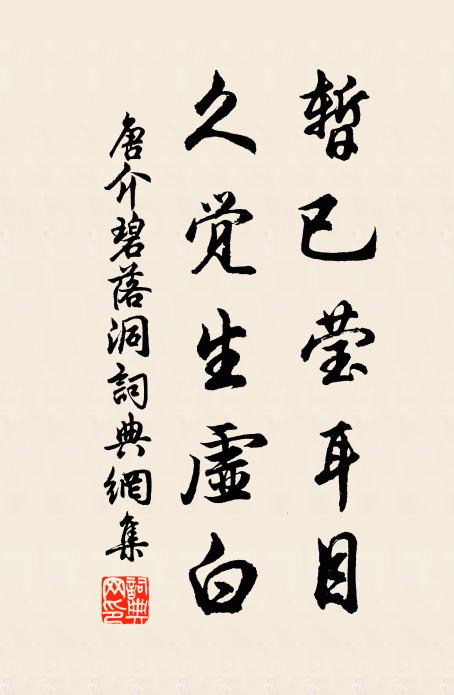 暫已莹耳目
久覚生虚白
唐介碧落洞詞典網集
詞典网印